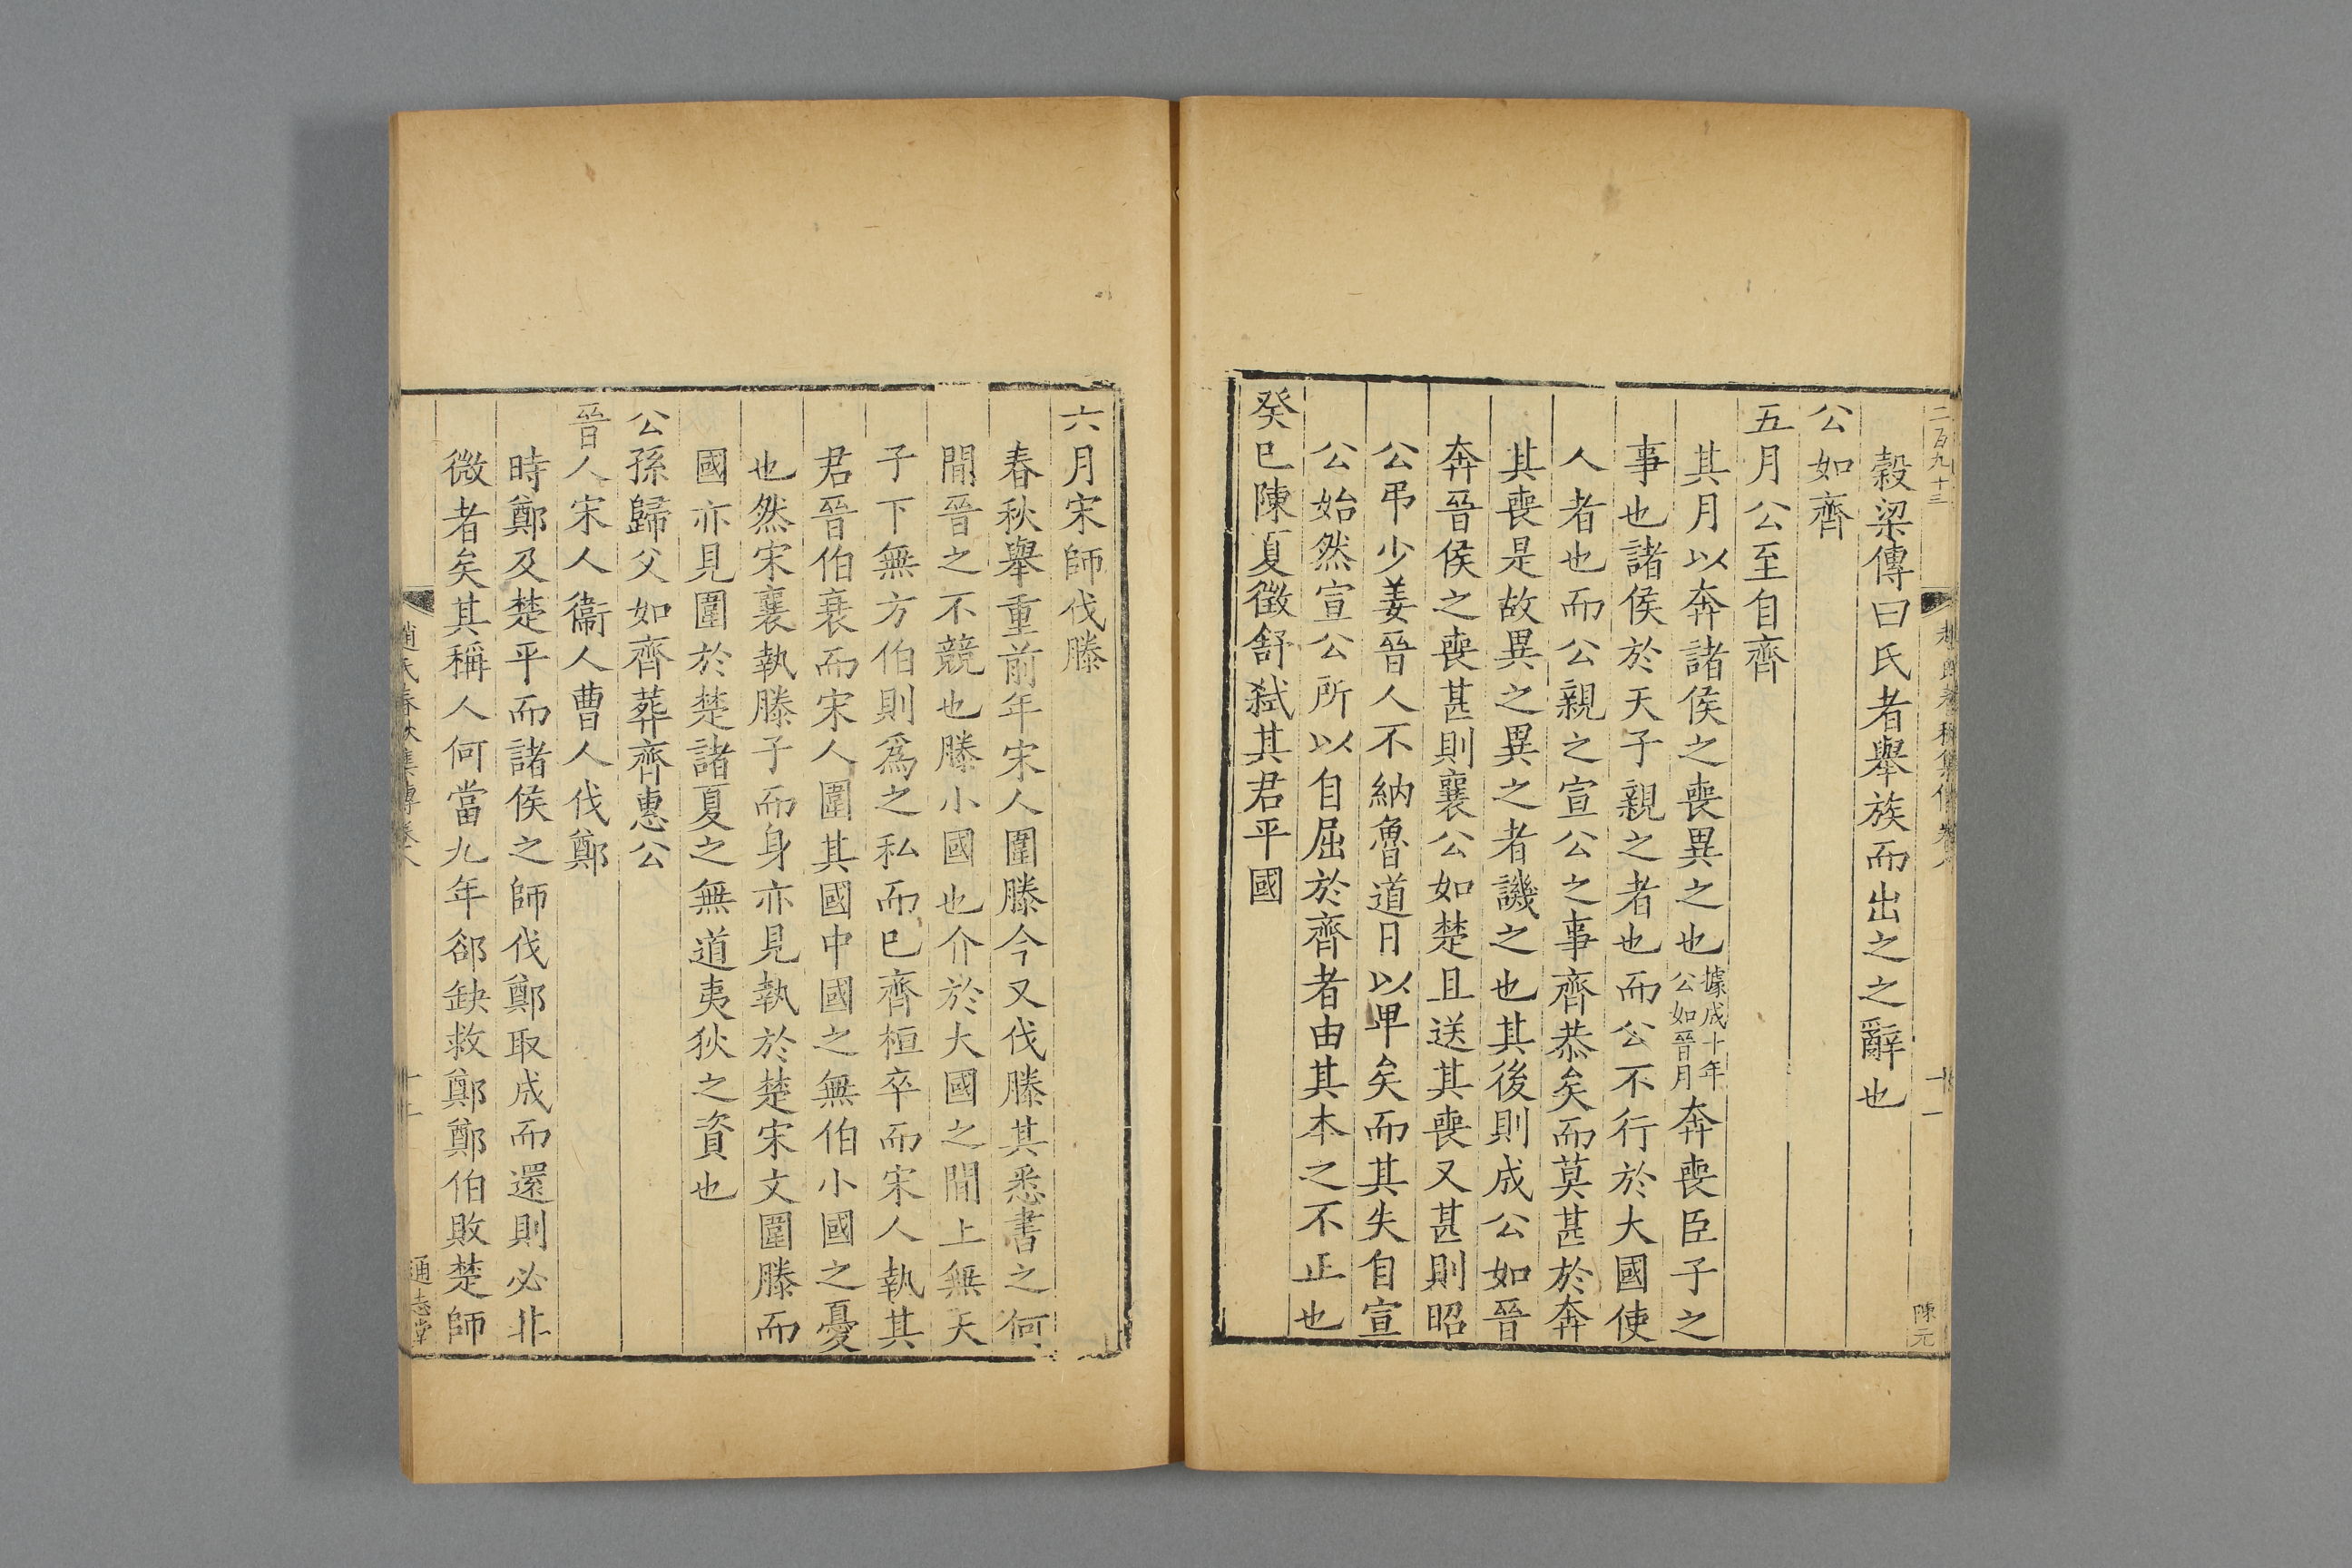 二百九十三
十一
陳元
穀梁傳曰氏者舉族而出之之辭也
公如齊
五月公至自齊
其月以奔諸侯之喪異之也據成十年公如晉月奔喪臣子之
事也諸侯於天子親之者也而公不行於大國使
人者也而公親之宣公之事齊恭矣而莫甚於奔
其喪是故異之異之者譏之也其後則成公如晉
奔晉侯之喪甚則襄公如楚且送其喪又甚則昭
公弔少姜晉人不納魯道日以卑矣而其失自宣
公始然宣公所以自屈於齊者由其本之不正也
癸巳陳夏徵舒弑其君平國
六月宋師伐滕
春秋舉重前年宋人圍滕今又伐滕其悉書之何
間晉之不競也滕小國也介於大國之間上無天
子下無方伯則為之私而已齊桓卒而宋人執其
君晉伯衰而宋人圍其國中國之無伯小國之憂
也然宋襄執滕子而身亦見執於楚宋文圍滕而
國亦見圍於楚諸夏之無道夷狄之資也
公孫歸父如齊葬齊惠公
晉人宋人衞人曹人伐鄭
時鄭及楚平而諸侯之師伐鄭取成而還則必非
微者矣其稱人何當九年郤缺救鄭鄭伯敗楚師
趙氏春秋集傳卷八
通志堂